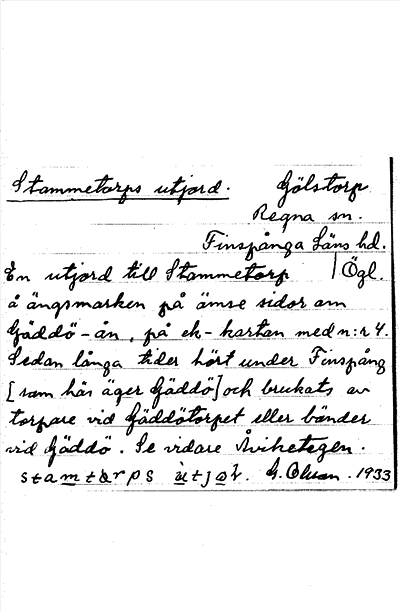 Stammetorps utjord. Gölstorp
Regna sn.
Finspånga Läns hd.
En utjord till Stammetorp Ögl.
å ängsmarken på ömse sidor om
Gäddö-ån, på ek-kartan med n:r 4.
Sedan långa tider hört under Finspång
[som här äger Gäddö] och brukats av
torpare vid Gäddötorpet eller bönder
vid Gäddö. Se vidare Åviketegen.
stamtɐrps ùtjoḷ. G. Olson. 1933